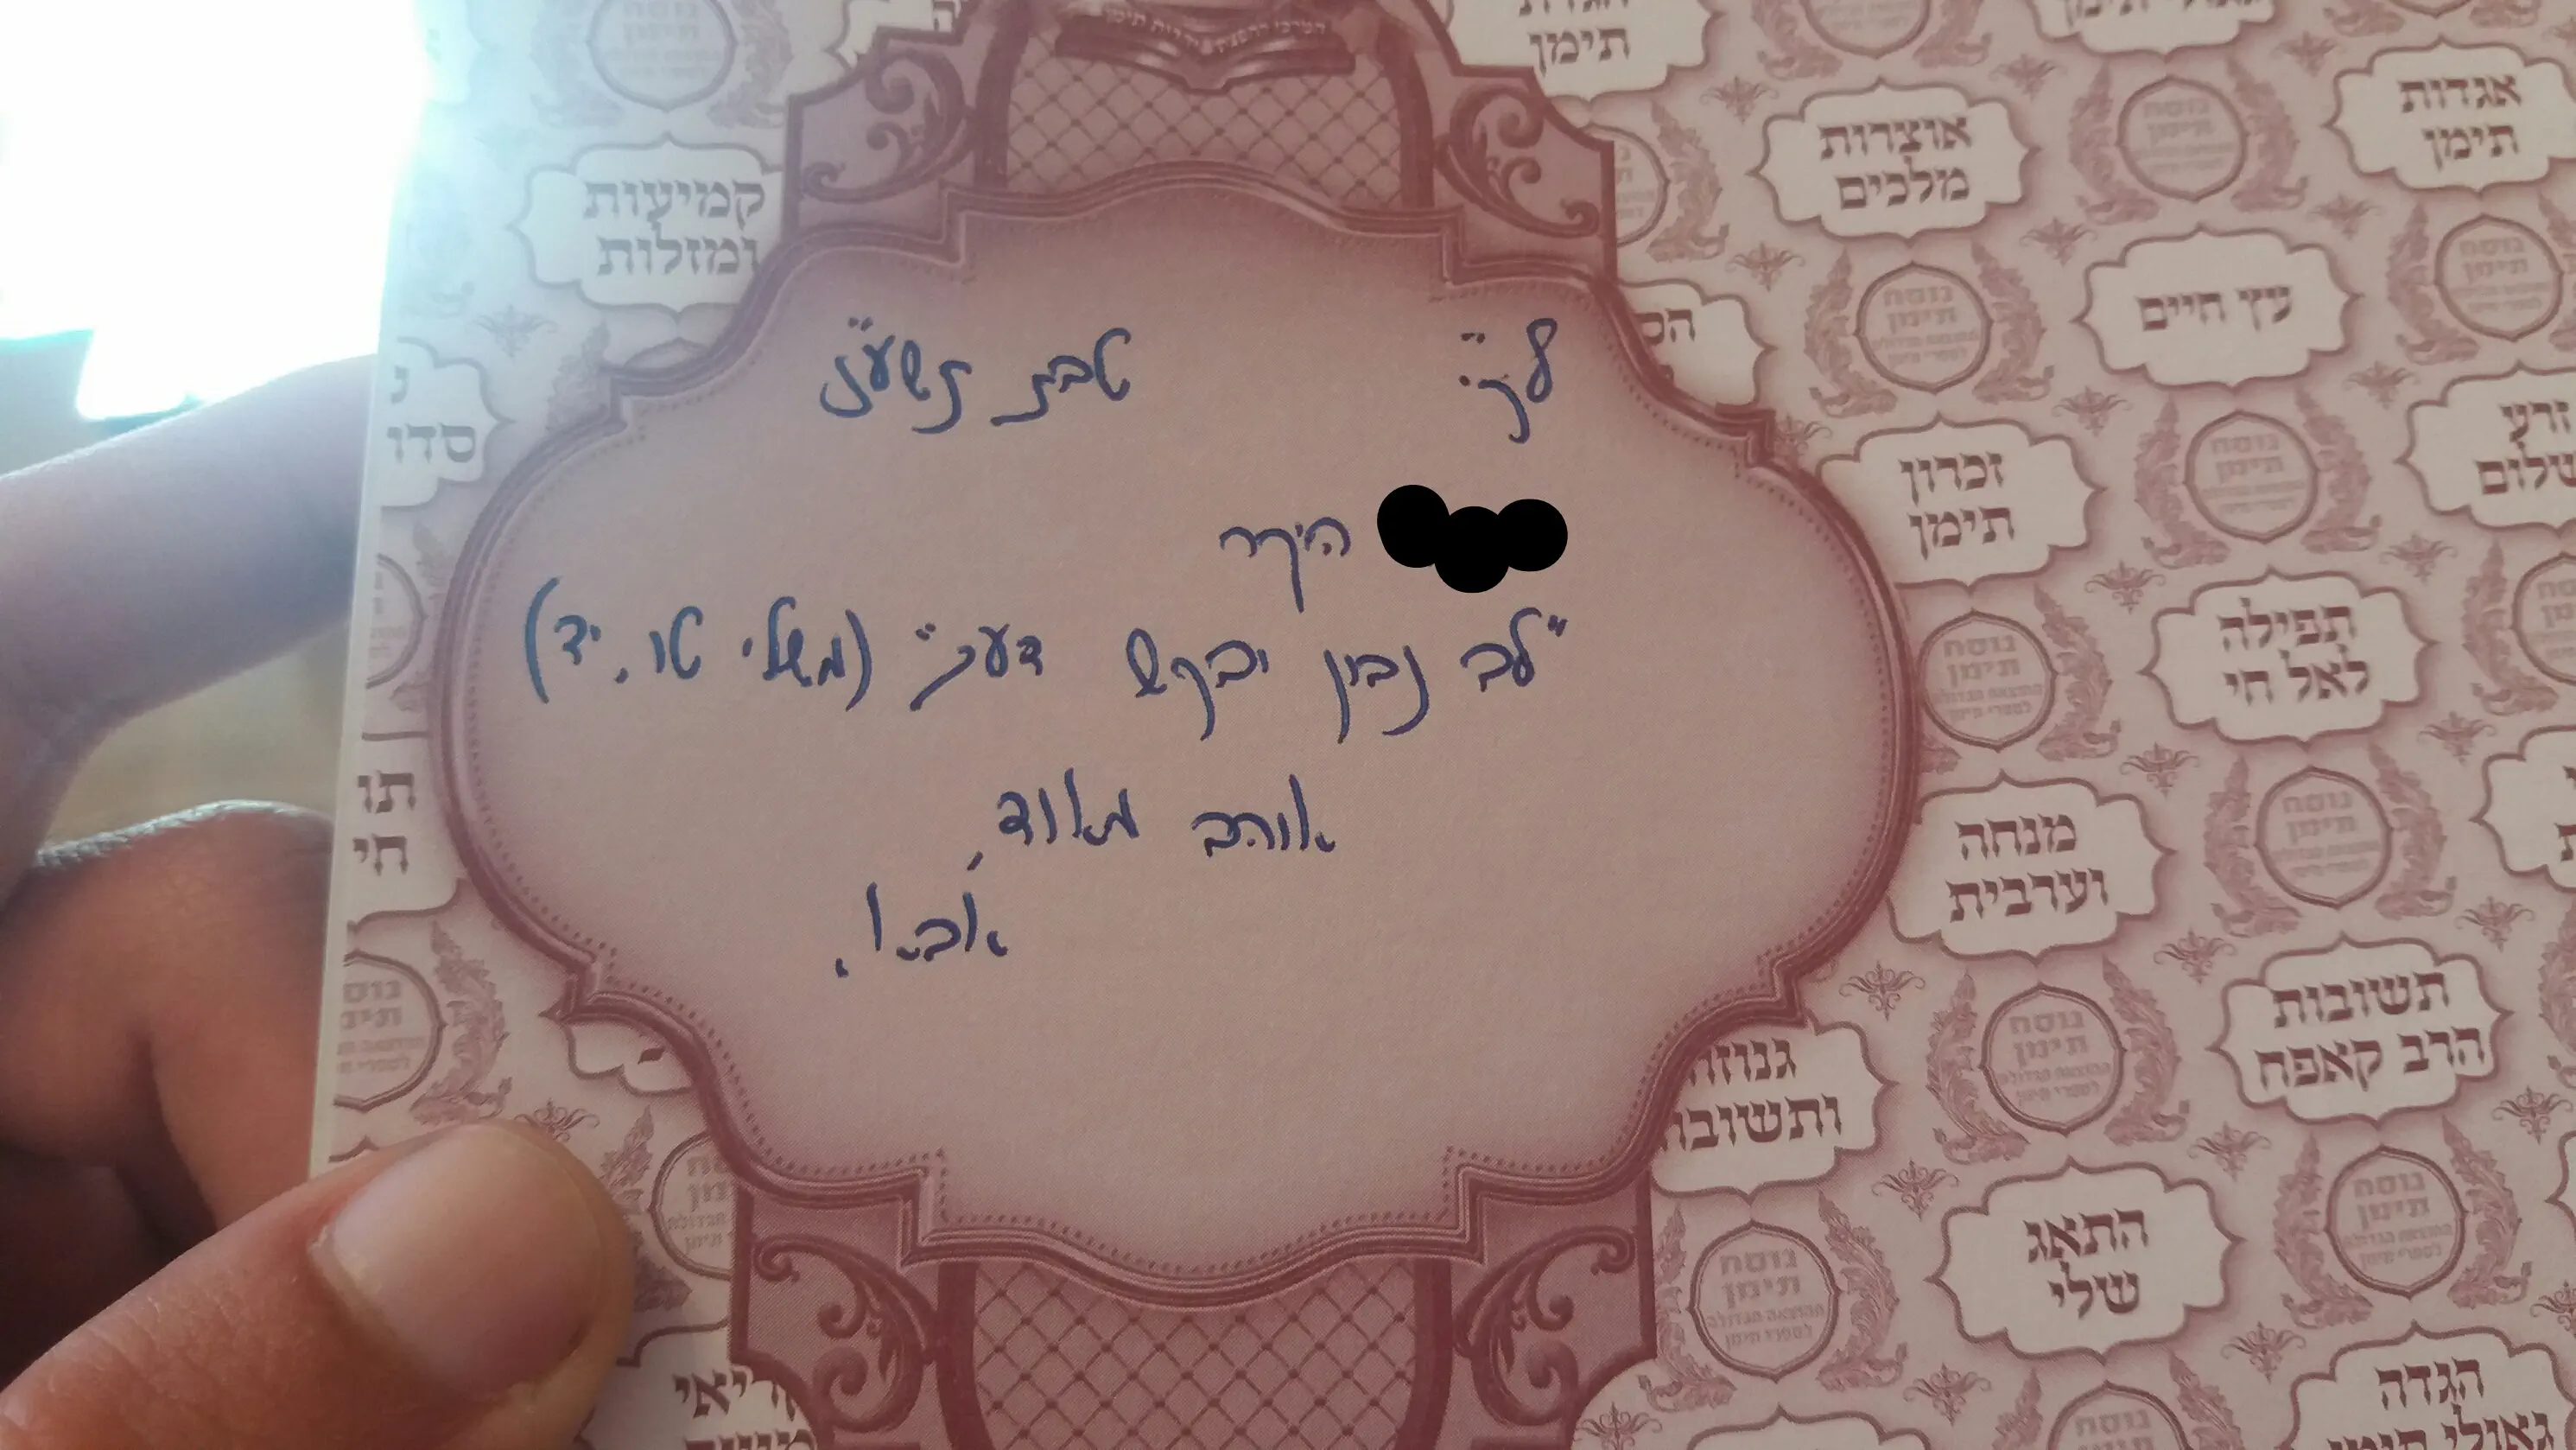 לק"י טבת תשע"ז
היקר
"לב נבון יבקש דעת" (משלי טו, יד)
אוהב מאוד,
אבא.
קמיעות
ומזלות
תימן
אוצרות
מלכים
אגדות
תימן
עץ חיים
זכרון
תימן
זרע
שלום
תפילה
לאל חי
מנחה
וערבית
תשובות
הרב קאפח
גנוזות
ותשובות
התאג
שלי
הגדה
נוסח
תימן